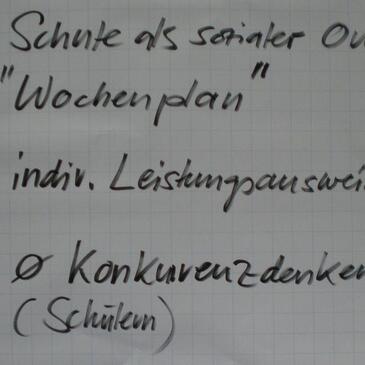 Schule als sozialer O
"Wochenplan"
indiv. Leistungsauswei
Ø Konkurenzdenken
(Schülern)